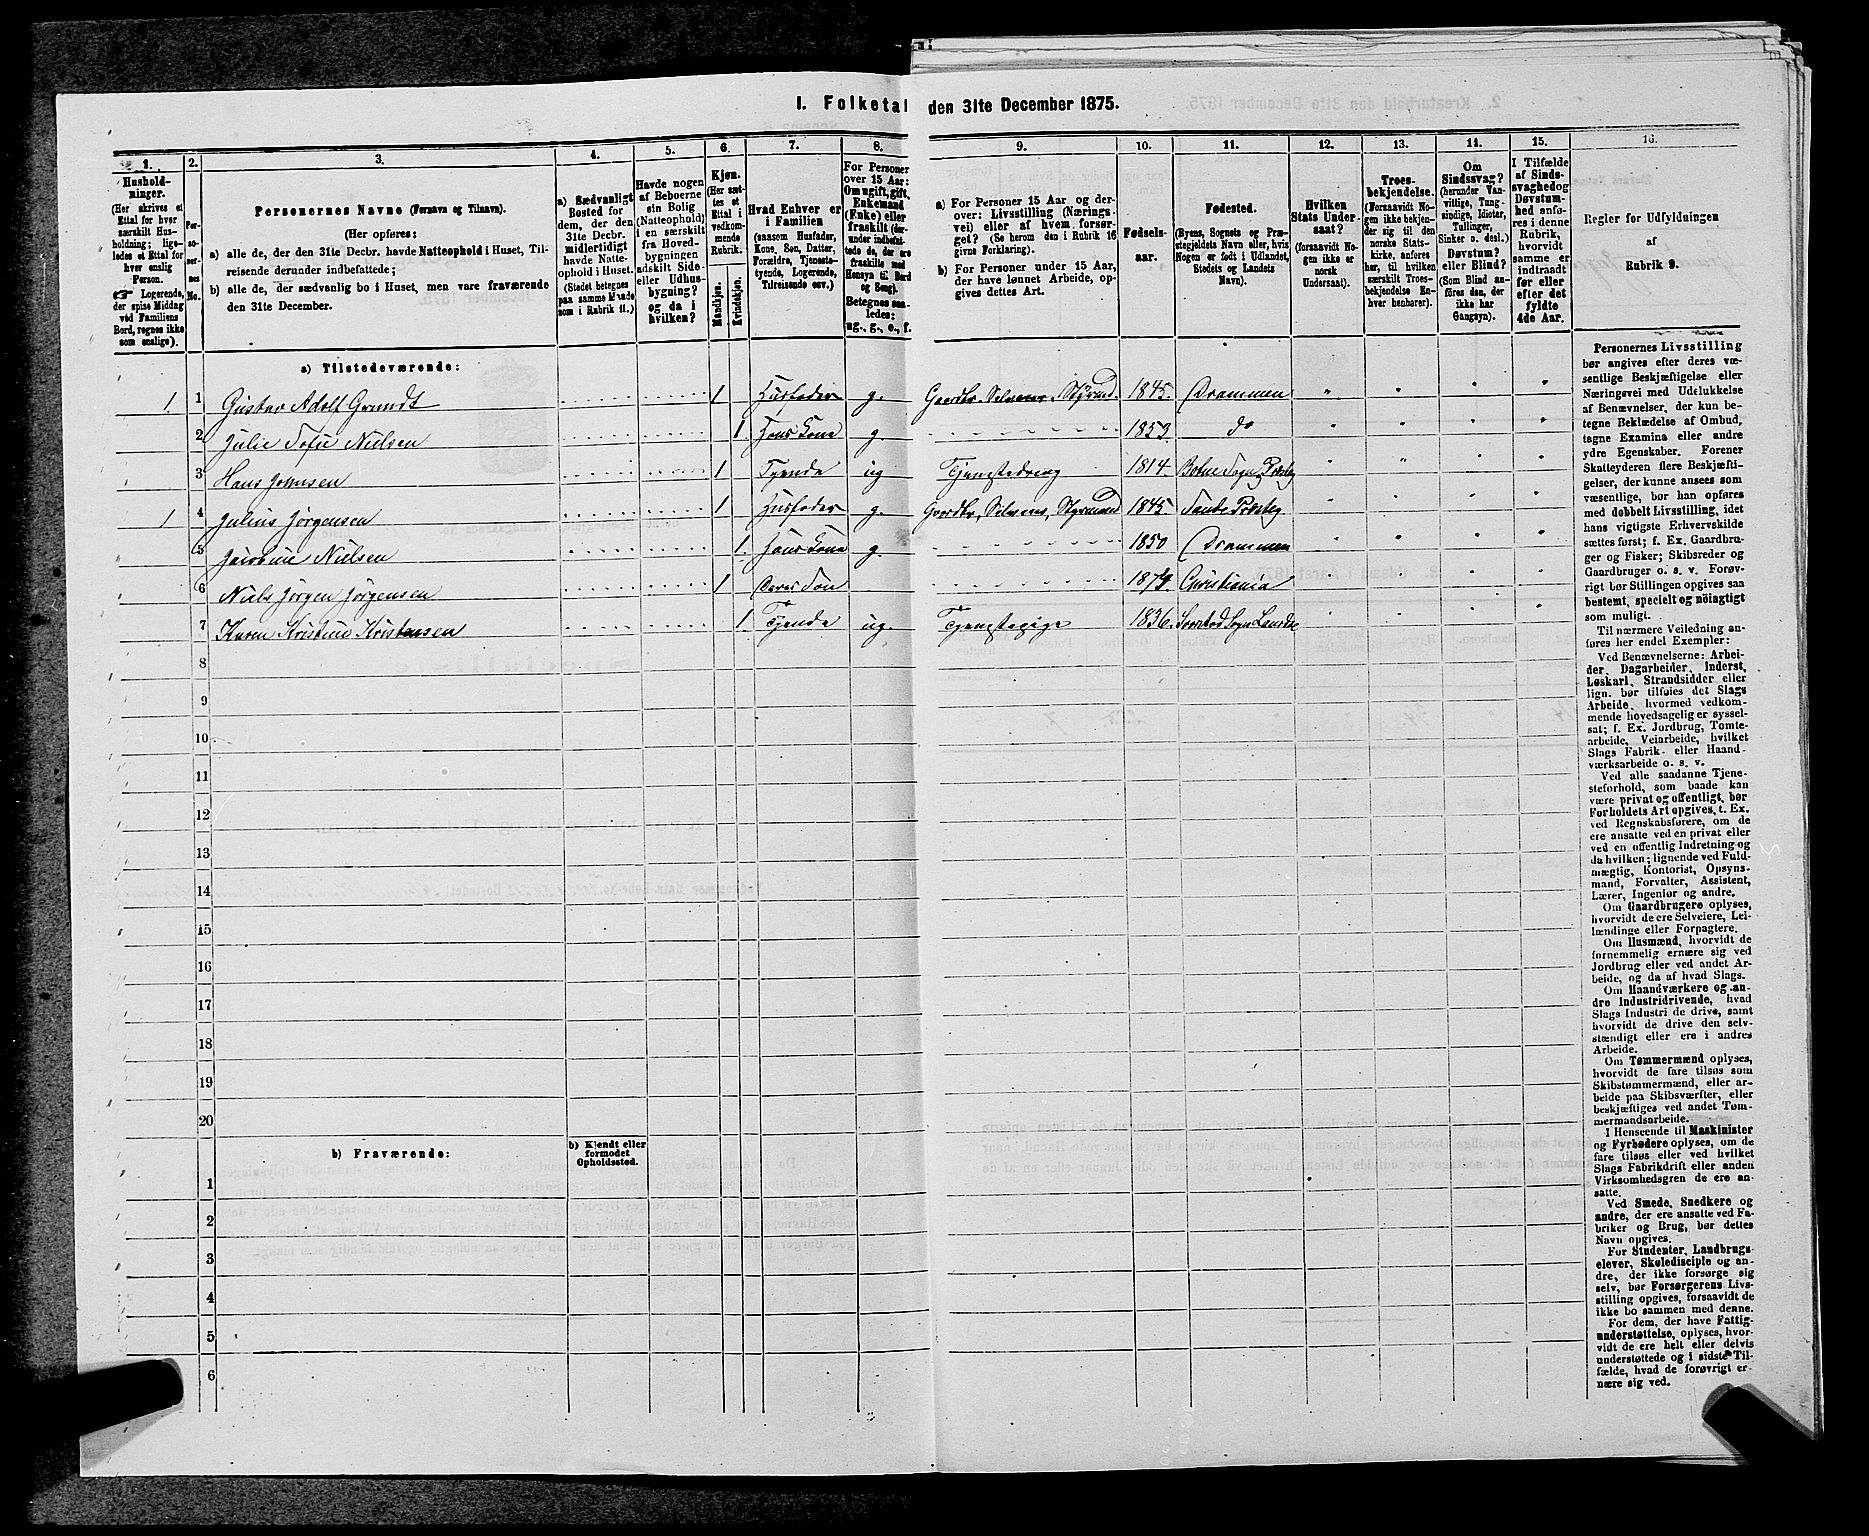 1. Folketal den 31te December 1875.
1. 2. 3. 4. 5. 6. 7. 8. 9. 10. 11. 12. 13. 14. 15. 16.
Hushold-
ninger.
(Her skrives et
Ettal for hver
særskilt Hus-
holdning; lige-
ledes et Ettal for
hver enslig
Person.
Logerende,
der spise Middag
ved Familiens
Bord, regnes ikke
som enslige).
Per-
so-
ner-
nes
No.
Personernes Navne (Fornavn og Tilnavn).
(Her opføres:
a) alle de, der den 31te Decbr. havde Natteophold i Huset, Til-
reisende derunder indbefattede;
b) alle de, der sædvanlig bo i Huset, men vare fraværende
den 31te December.
a) Sædvanligt
Bosted for
dem, der den
31te Decbr.
midlertidigt
havde Natte-
ophold i Huset.
(Stedet betegnes
paa samme Maade
som i Rubrik 11.)
Havde nogen
af Beboerne
sin Bolig
(Natteophold)
i en særskilt
fra Hoved-
bygningen
adskilt Side-
eller Udhus-
bygning?
og da i
hvilken?
Kjøn.
(Her sæt-
tes et
Ettal i
vedkom-
mende
Rubrik.
Mandkjøn.
Kvindekjøn.
Hvad Enhver er
i Familien
(saasom Husfader,
Kone, Søn, Datter,
Forældre, Tjeneste-
tyende, Logerende,
Tilreisende osv.)
For Personer
over 15 Aar:
Om ugift, gift,
Enkemand
(Enke) eller
fraskilt (der-
under indbefat-
tede de, der ere
fraskilte med
Hensyn til Bord
og Seng).
Betegnes saa-
ledes:
ug., g., e., f.
a) For Personer 15 Aar og der-
over: Livsstilling (Nærings-
vei) eller af hvem forsør-
get? (Se herom den i Rubrik 16
givne Forklaring).
b) For Personer under 15 Aar,
der have lønnet Arbeide, op-
gives dettes Art.
Fødsels-
aar.
Fødested.
(Byens, Sognets og Præ-
stegjeldets Navn eller, hvis
Nogen er født i Udlandet,
Stedets og Landets
Navn).
Hvilken
Stats Under-
saat?
(forsaavidt No-
gen ikke er
norsk
Undersaat).
Troes-
bekjendelse.
(Forsaavidt No-
gen ikke bekjen-
der sig til den
norske Stats-
kirke, anføres
her, til hvilken
særskilt Troes-
bekjendelse En-
hver henhører).
Om
Sindssvag?
(herunder Van-
vittige, Tung-
sindige, Idioter,
Tullinger,
Sinker o. desl.)
Døvstum?
eller Blind?
(Som Blind an-
føres den, der
ikke har
Gangsyn).
I Tilfælde
af Sinds-
svaghed og
Døvstum-
hed anfø-
res i denne
Rubrik,
hvorvidt
samme er
indtraadt
før eller
efter det
fyldte
4de Aar.
Regler for Udfyldningen
af
Rubrik 9.
a) Tilstedeværende:
1. 1 Gustav Adolf Grundt 1 Husfader g. Gaardbr, Selveier, Styrmd. 1845. Drammen
2 Julie Sofie Nielsen 1. Hans Kone g. 1853. do
3 Hans Johnsen 1 Tyende ug Tjenstedreng 1814. Botne Sogn Præsteg
1 4 Julius Jørgensen 1 Husfader g. Gaardbr, Selveier, Styrmand 1845. Sande Præsteg
5 Jacobine Nielsen 1. Hans Kone g. 1850 Drammen
6 Niels Jørgen Jørgensen 1 Deres Søn 1874. Christiania
7 Karen Kristine Kristensen 1. Tyende ug. Tjenstepige 1836.
8
9
10
11
12
13
14
15
16
17
18
19
20
b) Fraværende:
b) Kjendt eller
formodet
Opholdssted.
1
2
3
4
5
6
Personernes Livsstilling
bør angives efter deres væ-
sentlige Beskjæftigelse eller
Næringsvei med Udelukkelse
af Benævnelser, der kun be-
tegne Beklædelse af Ombud,
tagne Examina eller andre
ydre Egenskaber. Forener
Skatteyderen flere Beskjæfti-
gelser, der kunne ansees som
væsentlige, bør han opføres
med dobbelt Livsstilling, idet
hans vigtigste Erhvervskilde
sættes først; f. Ex. Gaardbru-
ger og Fisker; Skibsreder og
Gaardbruger o. s. v. Forøv-
rigt bør Stillingen opgives saa
bestemt, specielt og nøiagtigt
som muligt.
Til nærmere Veiledning an-
føres her endel Exempler:
Ved Benævnelserne: Arbei-
der, Dagarbeider, Inderst,
Løskarl, Strandsidder eller
lign. bør tilføies det Slags
Arbeide, hvormed vedkom-
mende hovedsagelig er syssel-
sat; f. Ex. Jordbrug, Tomte-
arbeide, Veiarbeide, hvilket
Slags Fabrik- eller Haand-
værksarbeide o. s. v.
Ved alle saadanne Tjene-
steforhold, som baade kan
være privat og offentligt, bør
Forholdets Art opgives, t. Ex.
ved Regnskabsførere, om de
ere ansatte ved en privat eller
ved en offentlig Indretning og
da hvilken; lignende ved Fuld-
mægtig, Kontorist, Opsyns-
mand, Forvalter, Assistent,
Lærer, Ingeniør og andre.
Om Gaardbrugere oplyses,
hvorvidt de ere Selveiere, Lei-
lændinge eller Forpagtere.
Om Husmænd, hvorvidt de
fornemmelig ernære sig ved
Jordbrug eller ved andet Ar-
beide, og da af hvad Slags.
Om Haandværkere og an-
dre Industridrivende, hvad
Slags Industri de drive, samt
hvorvidt de drive den selv-
stændigt eller ere i andres
Arbeide.
Om Tømmermænd oplyses,
hvorvidt de fare tilsøs som
Skibstømmermænd, eller ar-
beide paa Skibsværfter, eller
beskjæftiges ved andet Tøm-
mermandsarbeide.
I Henseende til Maskinister
og Fyrbødere oplyses, om de
fare tilsøs eller ved hvilket
Slags Fabrikdrift eller anden
Virksomhedsgren de ere an-
satte.
Ved Smede, Snedkere og
andre, der ere ansatte ved Fa-
briker og Brug, bør dettes
Navn opgives.
For Studenter, Landbrugs-
elever, Skoledisciple og an-
dre, der ikke forsørge sig
selv, bør Forsørgerens Livs-
stilling opgives, forsaavidt de
ikke bo sammen med denne.
For dem, der have Fattig-
understøttelse, oplyses, hvor-
vidt de ere helt eller delvis
understøttede og i sidste Til-
fælde, hvad de forøvrigt er-
nære sig ved.